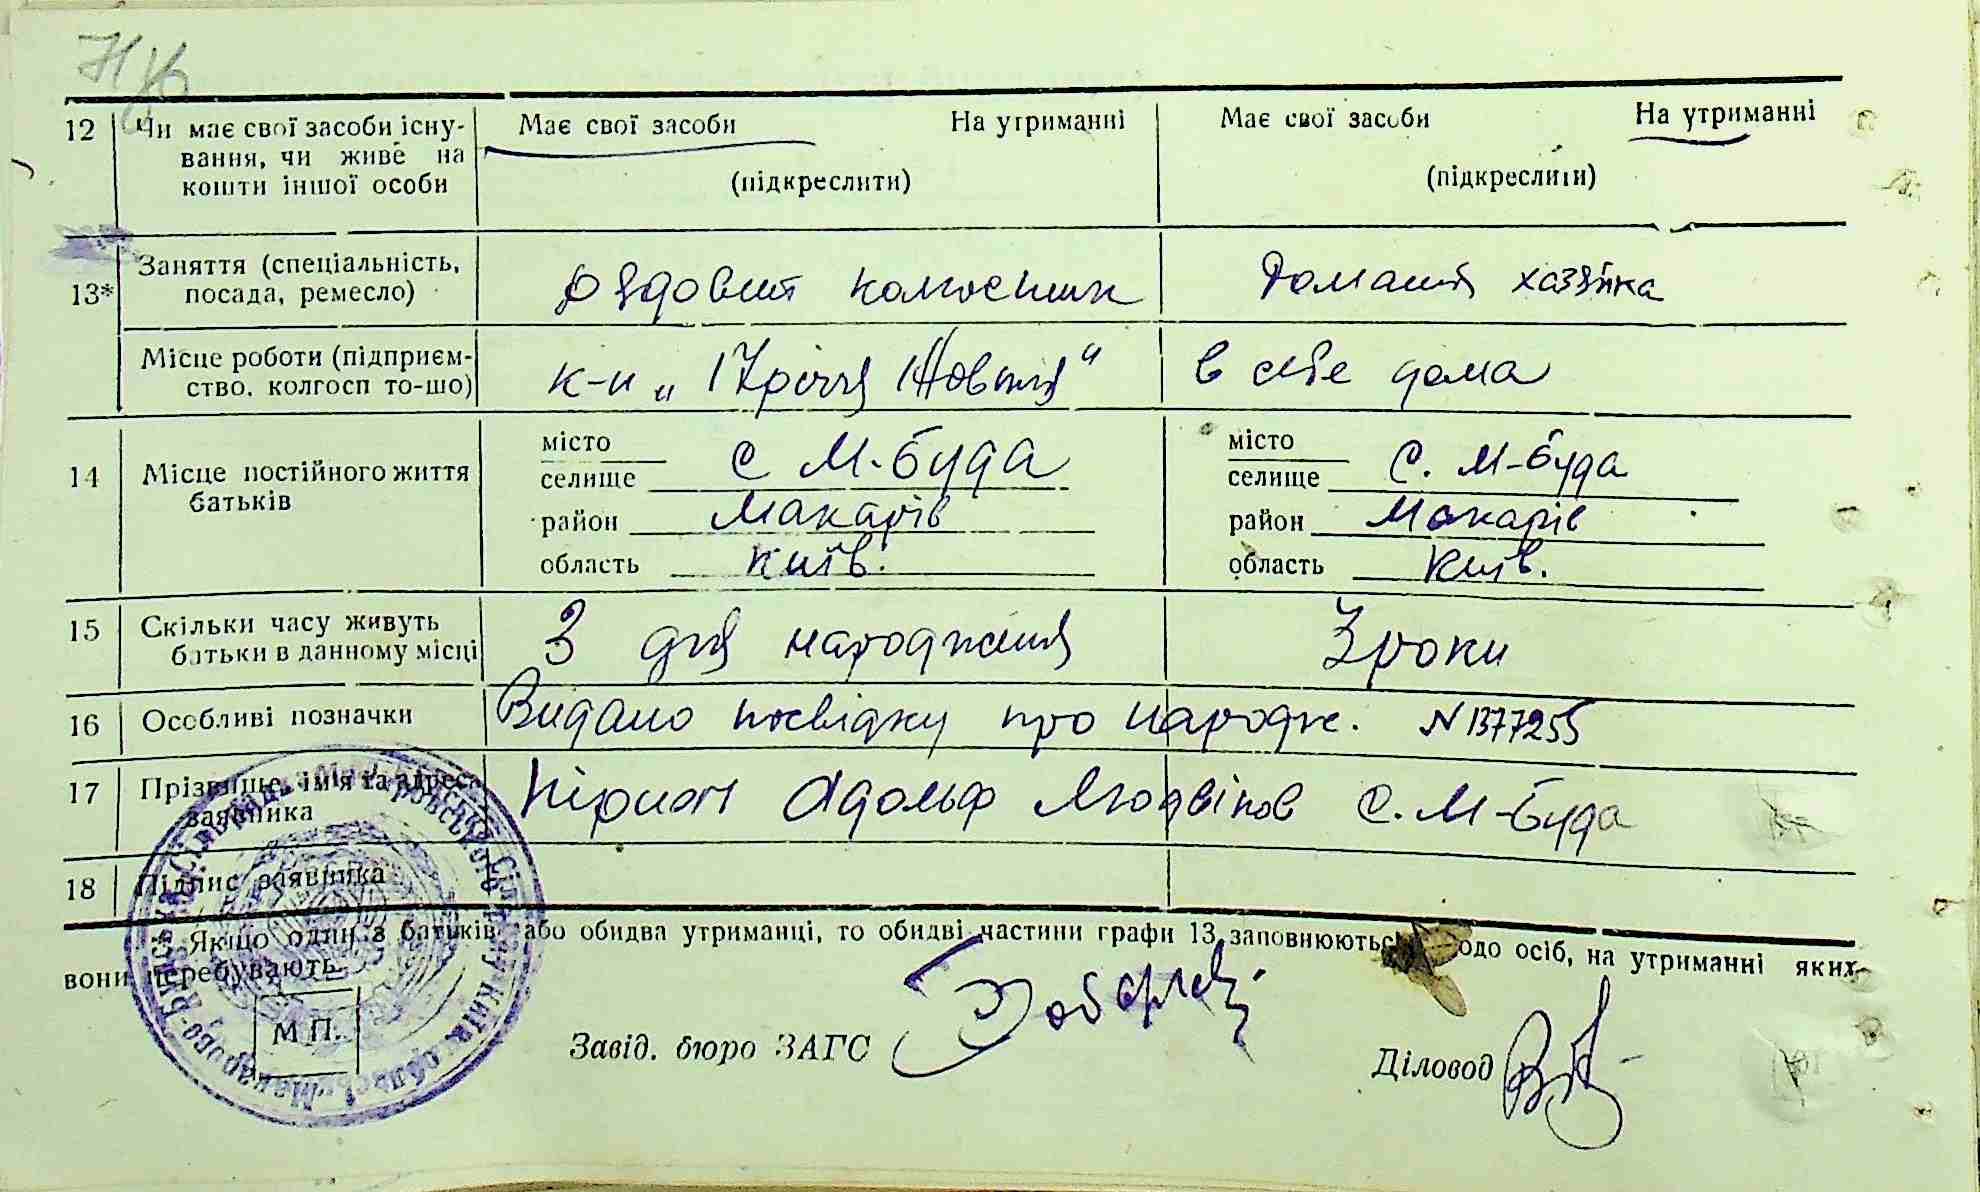 12 Чи має свої засоби існу- Має свої засоби На утриманні Має свої засоби На утриманні
вання, чи живе на
кошти іншої особи (підкреслити) (підкреслити)
Заняття (спеціальність,
13* посада, ремесло) рядовий колгоспник Домашня хазяйка
Місце роботи (підприєм-
ство, колгосп то-що) к-п „17 річчя Жовтня" в себе дома
місто місто
14 Місце постійного життя селище с М-Буда селище с. М-Буда
батьків район Макарів район Макарів
область Київ. область Київ.
15 Скільки часу живуть
батьки в данному місці З дня народження 3 роки
16 Особливі позначки Видано посвідку про народж. N 1377255
17 Прізвище, ім'я та адреса
заявника Адольф Людвіков с. М-Буда
18 Підпис заявника
* Якщо один з батьків або обидва утриманці, то обидві частини графи 13 заповнюються щодо осіб, на утриманні яких
вони перебувають.
М П.
Завід. бюро ЗАГС
Діловод